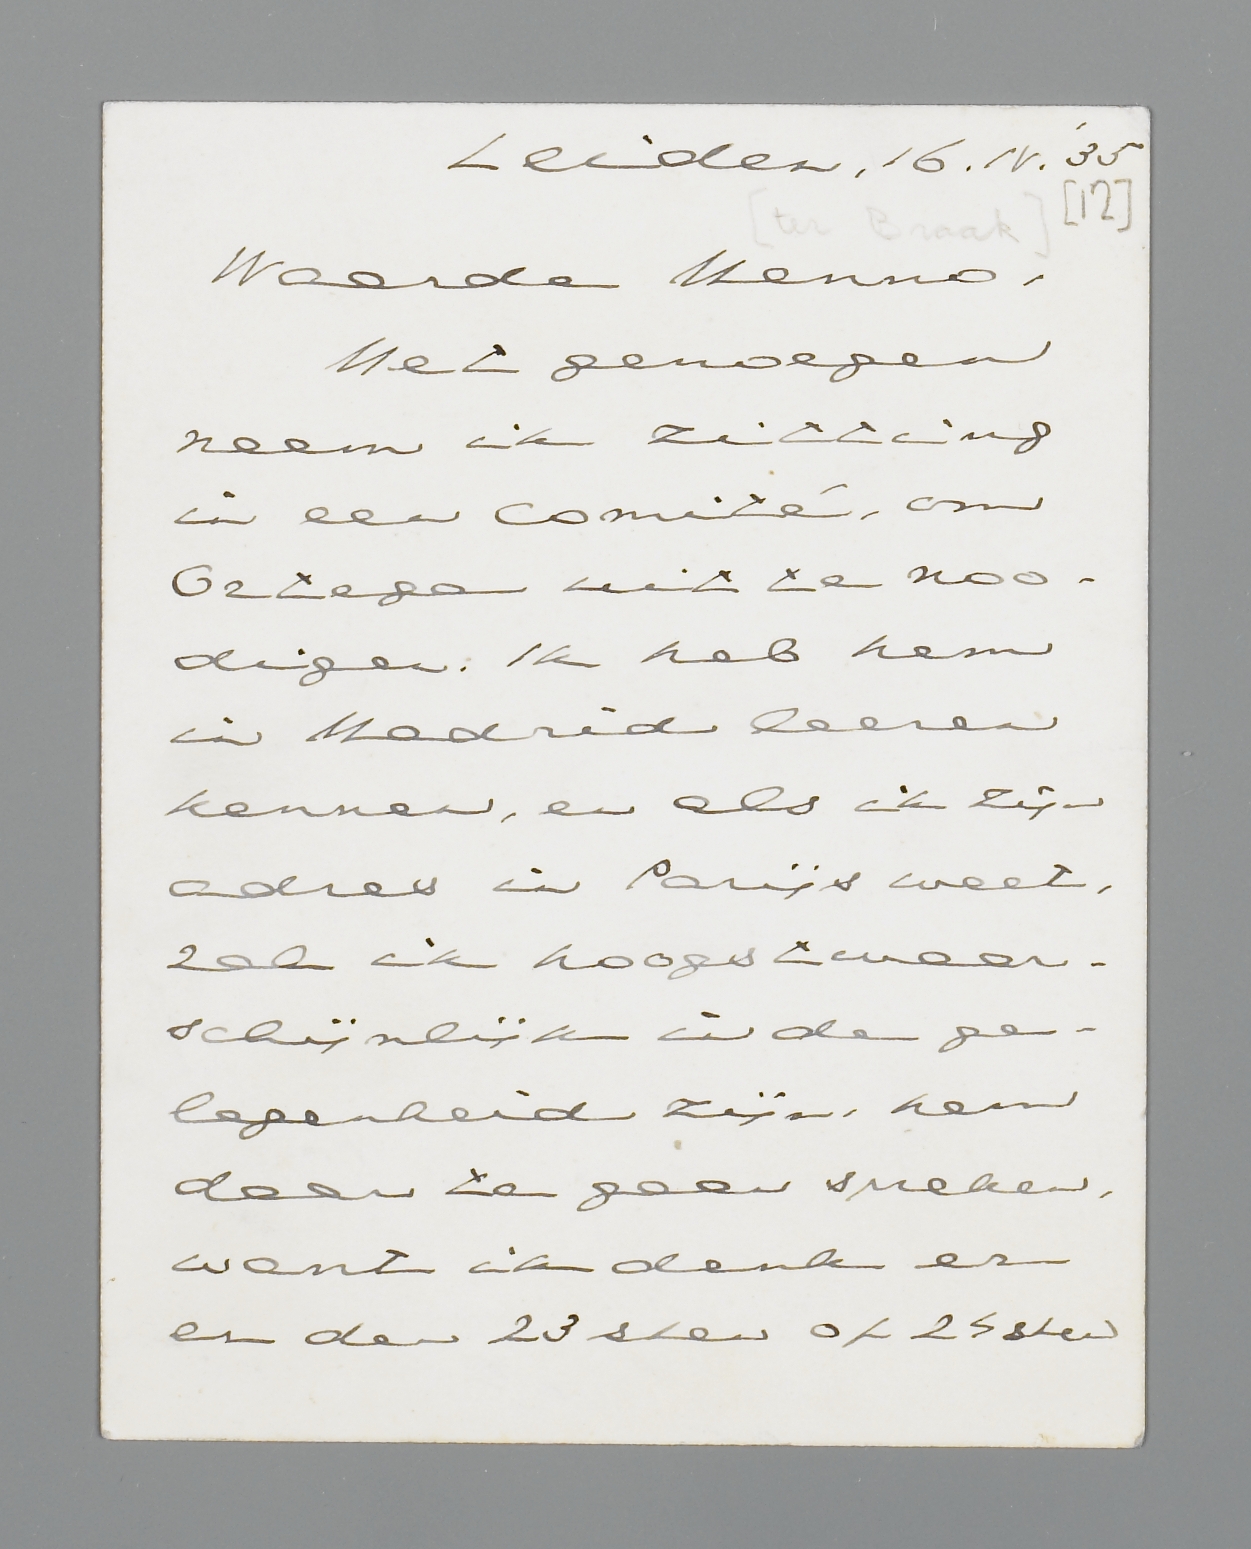 Leiden, 16.IV.'35
[12]
[ter Braak]
Waarde Menno,
Met genoegen
neem ik zitting
in een comité, om
Ortega uit te noo-
digen. Ik heb hem
in Madrid leeren
kennen, en als ik zijn
adres in Parijs weet,
zal ik hoogstwaar-
schijnlijk in de ge-
legenheid zijn, hem
daar te gaan spreken,
want ik denk er
en den 23sten of 24sten